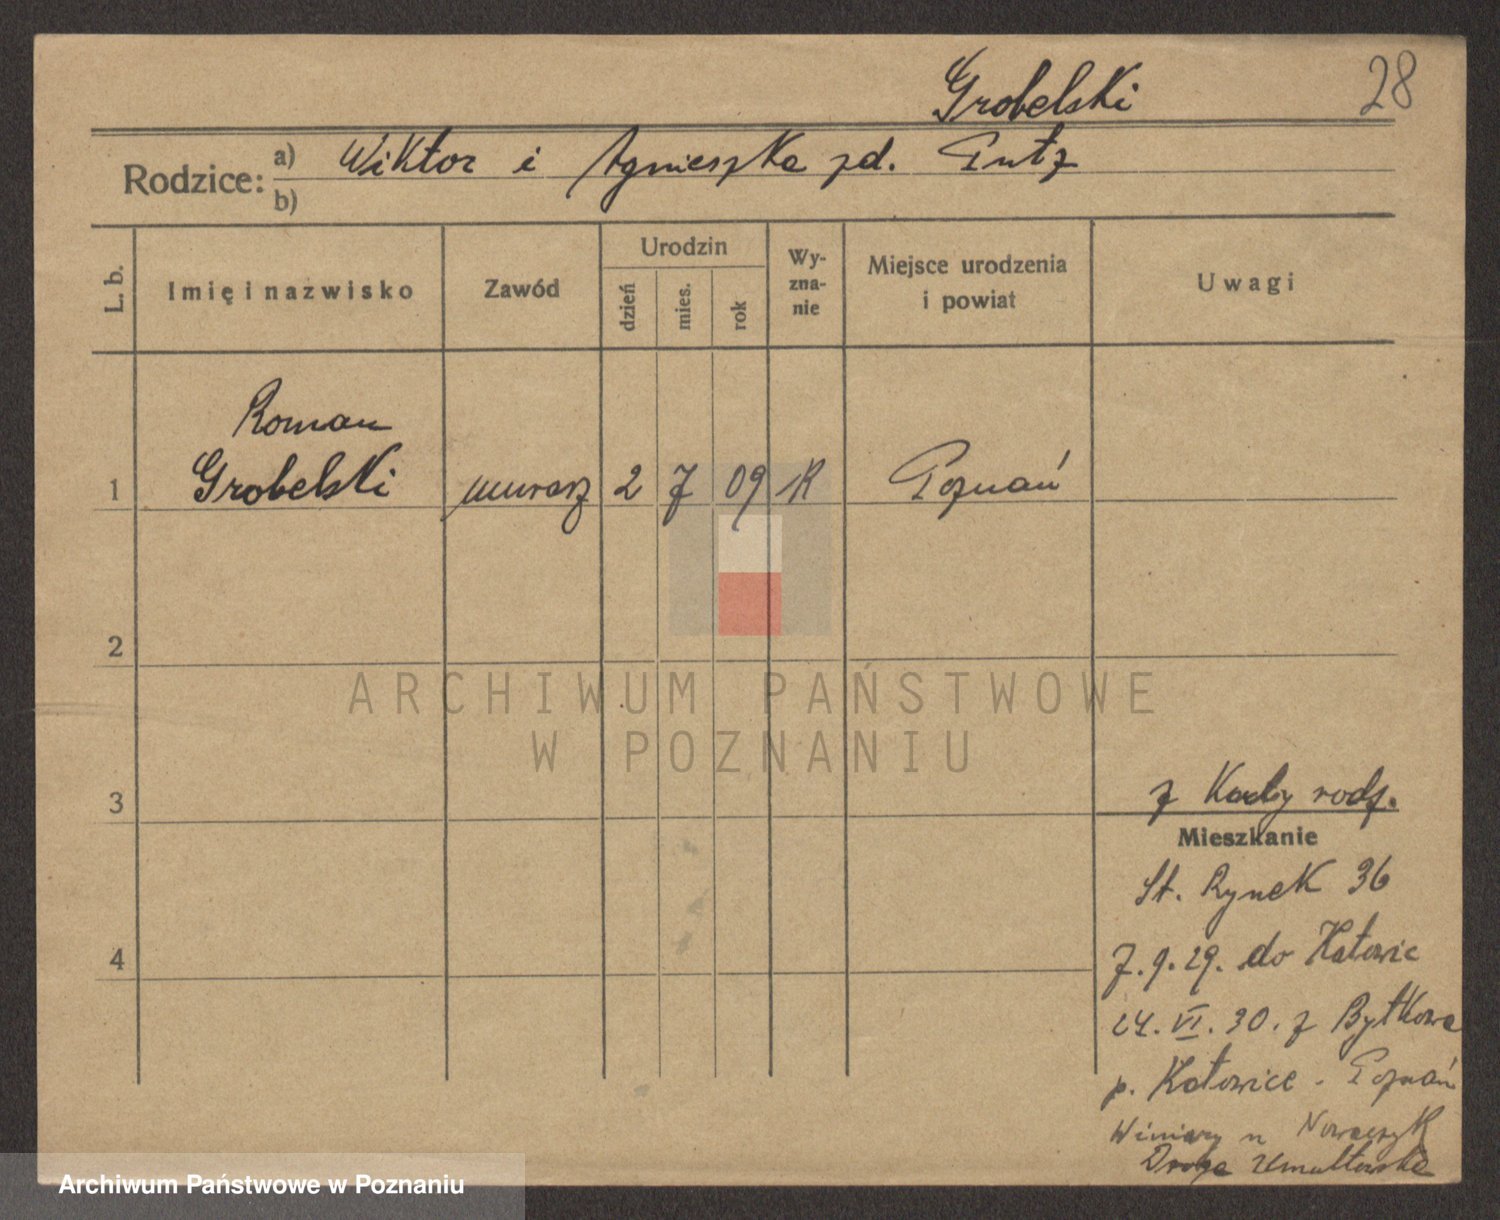 Grobelski
28
Rodzice: a) Wiktor i Agnieszka zd. Putz
b)
L. b. Imię i nazwisko Zawód Urodzin dzień mies. rok Wyzna-nie Miejsce urodzenia i powiat Uwagi
Roman
1 Grobelski murarz 2 7 09 K Poznań
2
ARCHIWUM PAŃSTWOWE
W POZNANIU
3 z Karty rodz.
Mieszkanie
St. Rynek 36
4 7.9.29. do Katowic
24.VI.30. z Bytkowa
p. Katowice - Poznań
Winiary u Nowaczyk
Droga Umultowska
Archiwum Państwowe w Poznaniu